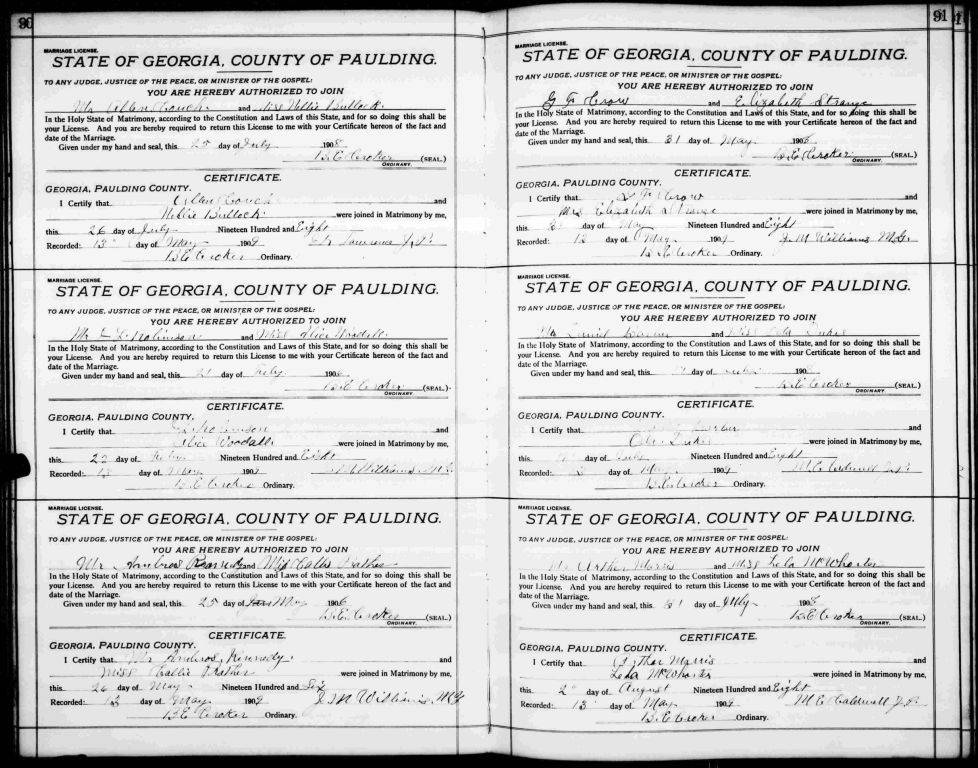 90
MARRIAGE LICENSE.
STATE OF GEORGIA, COUNTY OF PAULDING.
TO ANY JUDGE, JUSTICE OF THE PEACE, OR MINISTER OF THE GOSPEL:
YOU ARE HEREBY AUTHORIZED TO JOIN
Mr Allen Couch and Mrs Nellie Bullock
In the Holy State of Matrimony, according to the Constitution and Laws of this State, and for so doing this shall be
your License. And you are hereby required to return this License to me with your Certificate hereon of the fact and
date of the Marriage.
Given under my hand and seal, this 25 day of July 1908
B.E. Croker (SEAL.)
ORDINARY.
CERTIFICATE.
GEORGIA, PAULDING COUNTY.
I Certify that Allen Couch and
Nellie Bullock were joined in Matrimony by me,
this 26 day of July Nineteen Hundred and Eight
Recorded: 13 day of May 1909
B E Croker Ordinary.
MARRIAGE LICENSE.
STATE OF GEORGIA, COUNTY OF PAULDING.
TO ANY JUDGE, JUSTICE OF THE PEACE, OR MINISTER OF THE GOSPEL:
YOU ARE HEREBY AUTHORIZED TO JOIN
Mr and Miss Alice
In the Holy State of Matrimony, according to the Constitution and Laws of this State, and for so doing this shall be
your License. And you are hereby required to return this License to me with your Certificate hereon of the fact and
date of the Marriage.
Given under my hand and seal, this 21 day of July 190
B.E. Croker (SEAL.)
ORDINARY
CERTIFICATE.
GEORGIA, PAULDING COUNTY.
I Certify that and
Alice Woodall were joined in Matrimony by me,
this 22 day of Nineteen Hundred and Eight
Recorded: 13 day of May 1909 Williams
B E Croker Ordinary.
MARRIAGE LICENSE.
STATE OF GEORGIA, COUNTY OF PAULDING.
TO ANY JUDGE, JUSTICE OF THE PEACE, OR MINISTER OF THE GOSPEL:
YOU ARE HEREBY AUTHORIZED TO JOIN
Mr Ambros Kennedy and Miss Callie Prather
In the Holy State of Matrimony, according to the Constitution and Laws of this State, and for so doing this shall be
your License. And you are hereby required to return this License to me with your Certificate hereon of the fact and
date of the Marriage.
Given under my hand and seal, this 25 day of May 1906
B.E. Croker (SEAL.)
ORDINARY.
CERTIFICATE.
GEORGIA, PAULDING COUNTY.
I Certify that Mr Ambros Kennedy and
Miss Callie Prather were joined in Matrimony by me,
this 26 day of May Nineteen Hundred and Six
Recorded: 13 day of May 1909 J M Williams MG
B E Croker Ordinary.
91
MARRIAGE LICENSE.
STATE OF GEORGIA, COUNTY OF PAULDING.
TO ANY JUDGE, JUSTICE OF THE PEACE, OR MINISTER OF THE GOSPEL:
YOU ARE HEREBY AUTHORIZED TO JOIN
G F Crow and Elizabeth Strange
In the Holy State of Matrimony, according to the Constitution and Laws of this State, and for so doing this shall be
your License. And you are hereby required to return this License to me with your Certificate hereon of the fact and
date of the Marriage.
Given under my hand and seal, this 31 day of May 190
B.E. Croker (SEAL.)
ORDINARY.
CERTIFICATE.
GEORGIA, PAULDING COUNTY.
I Certify that G F Crow and
Mrs Elizabeth Strange were joined in Matrimony by me,
this 31 day of May Nineteen Hundred and Eight
Recorded: 13 day of May 1909 J. M Williams M.G.
B. E Croker Ordinary.
MARRIAGE LICENSE.
STATE OF GEORGIA, COUNTY OF PAULDING.
TO ANY JUDGE, JUSTICE OF THE PEACE, OR MINISTER OF THE GOSPEL:
YOU ARE HEREBY AUTHORIZED TO JOIN
Mr and Miss
In the Holy State of Matrimony, according to the Constitution and Laws of this State, and for so doing this shall be
your License. And you are hereby required to return this License to me with your Certificate hereon of the fact and
date of the Marriage.
Given under my hand and seal, this day of 190
B.E. Croker (SEAL.)
ORDINARY.
CERTIFICATE.
GEORGIA, PAULDING COUNTY.
I Certify that and
were joined in Matrimony by me,
this day of July Nineteen Hundred and Eight
Recorded: day of May 1909 M.E. Caldwell J.P.
B.E. Croker Ordinary.
MARRIAGE LICENSE.
STATE OF GEORGIA, COUNTY OF PAULDING.
TO ANY JUDGE, JUSTICE OF THE PEACE, OR MINISTER OF THE GOSPEL:
YOU ARE HEREBY AUTHORIZED TO JOIN
Mr Arthur Morris and Miss Lela McWhorter
In the Holy State of Matrimony, according to the Constitution and Laws of this State, and for so doing this shall be
your License. And you are hereby required to return this License to me with your Certificate hereon of the fact and
date of the Marriage.
Given under my hand and seal, this 31 day of July 1908
B.E. Croker (SEAL.)
ORDINARY.
CERTIFICATE.
GEORGIA, PAULDING COUNTY.
I Certify that Arthur Morris and
Lela McWhorter were joined in Matrimony by me,
this 2 day of August Nineteen Hundred and Eight
Recorded: 13 day of May 1909 M E Caldwell J.P.
B. E Croker Ordinary.